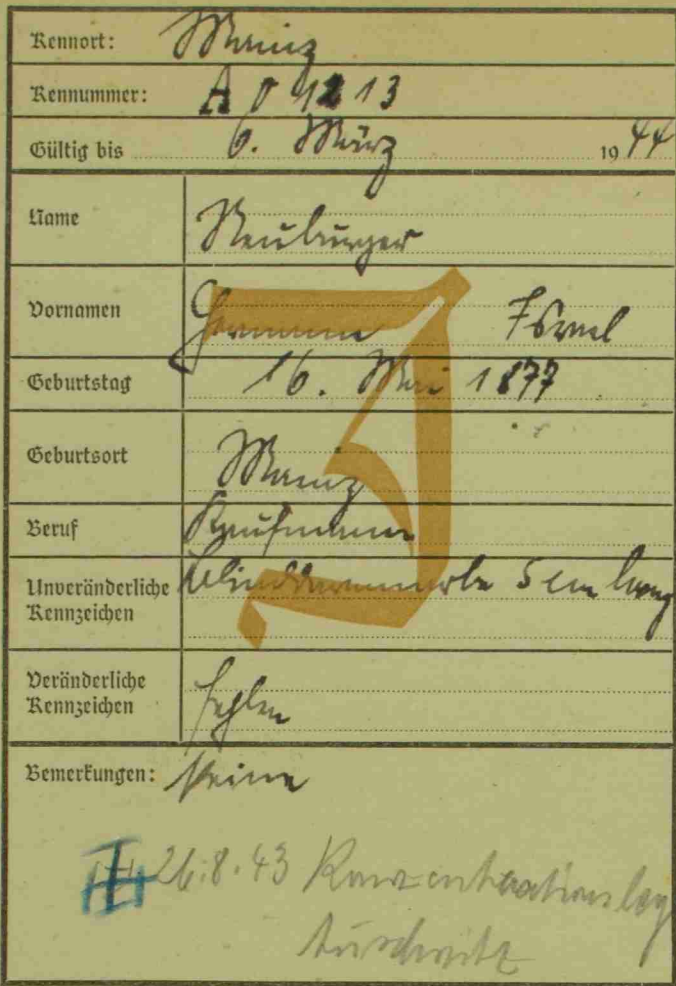 Kennort: Mainz
Kennummer: A 01213
Gültig bis 6. März 1944
Name Neuburger
Vornamen Hermann Israel
Geburtstag 16. Mai 1877
Geburtsort Mainz
Beruf Kaufmann
Unveränderliche Kennzeichen Blinddarmnarbe 5 cm lang
Veränderliche Kennzeichen fehlen
Bemerkungen: keine
J
26.8.43 Konzentrationslag
Auschwitz